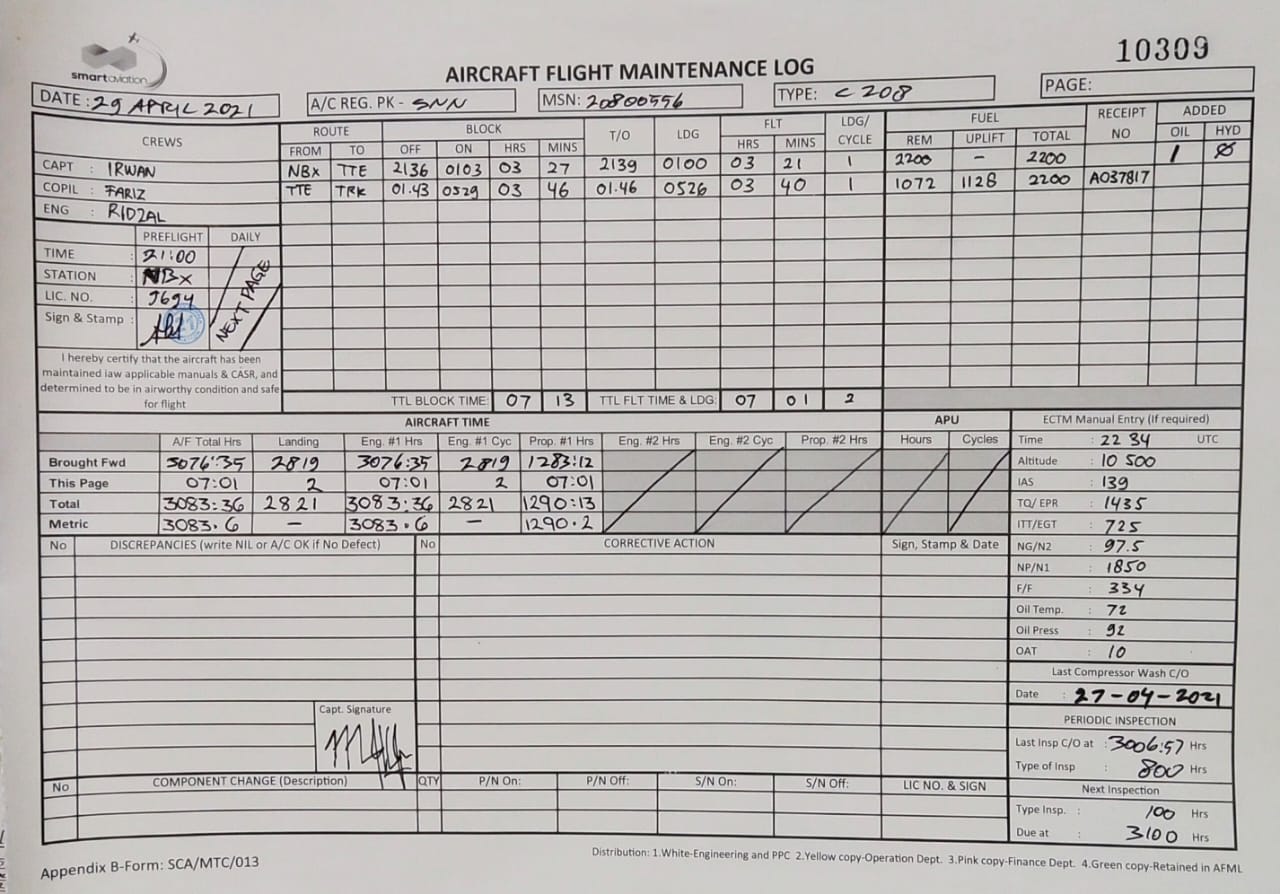 smartaviation
10309
AIRCRAFT FLIGHT MAINTENANCE LOG
DATE : 29 APRIL 2021 A/C REG. PK - SNN MSN: 20800556 TYPE: C 208 PAGE:
CREWS ROUTE BLOCK T/O LDG FLT LDG/ CYCLE FUEL RECEIPT NO ADDED
FROM TO OFF ON HRS MINS HRS MINS REM UPLIFT TOTAL OIL HYD
CAPT : IRWAN NBX TTE 2136 0103 03 27 2139 0100 03 21 1 2200 - 2200 1 Ø
COPIL : FARIZ TTE TRK 01.43 0529 03 46 01.46 0526 03 40 1 1072 1128 2200 A037817
ENG : RIDZAL
PREFLIGHT DAILY
TIME : 21:00
STATION : NBX
LIC. NO. : 7694
Sign & Stamp :
NEXT PAGE
I hereby certify that the aircraft has been
maintained iaw applicable manuals & CASR, and
determined to be in airworthy condition and safe
for flight
TTL BLOCK TIME: 07 13 TTL FLT TIME & LDG: 07 01 2
AIRCRAFT TIME APU ECTM Manual Entry (If required)
A/F Total Hrs Landing Eng. #1 Hrs Eng. #1 Cyc Prop. #1 Hrs Eng. #2 Hrs Eng. #2 Cyc Prop. #2 Hrs Hours Cycles Time : 22 34 UTC
Brought Fwd 3076:35 2819 3076:35 2819 1283:12 Altitude : 10 500
This Page 07:01 2 07:01 2 07:01 IAS : 139
Total 3083:36 2821 3083:36 2821 1290:13 TQ/ EPR : 1435
Metric 3083.6 — 3083.6 — 1290.2 ITT/EGT : 725
No DISCREPANCIES (write NIL or A/C OK if No Defect) No CORRECTIVE ACTION Sign, Stamp & Date NG/N2 : 97.5
NP/N1 : 1850
F/F : 334
Oil Temp. : 72
Oil Press : 92
OAT : 10
Last Compressor Wash C/O
Date : 27-04-2021
Capt. Signature
PERIODIC INSPECTION
Last Insp C/O at : 3006:57 Hrs
Type of Insp : 800 Hrs
No COMPONENT CHANGE (Description) QTY P/N On: P/N Off: S/N On: S/N Off: LIC NO. & SIGN Next Inspection
Type Insp. : 100 Hrs
Due at : 3100 Hrs
Appendix B-Form: SCA/MTC/013
Distribution: 1.White-Engineering and PPC 2.Yellow copy-Operation Dept. 3.Pink copy-Finance Dept. 4.Green copy-Retained in AFML